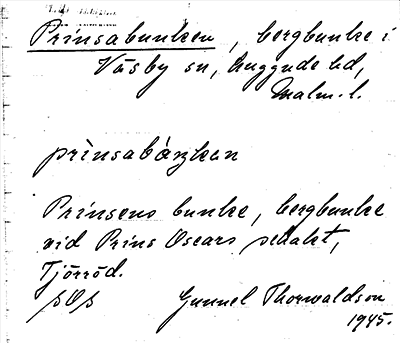 Prinsabunken, bergbunke i
Väsby sn, Luggude hd,
Malm. l.
Prinsens bunke, bergbunke
vid Prins Oscars schakt,
Tjörröd.
Gunnel Thorwaldson
1945.